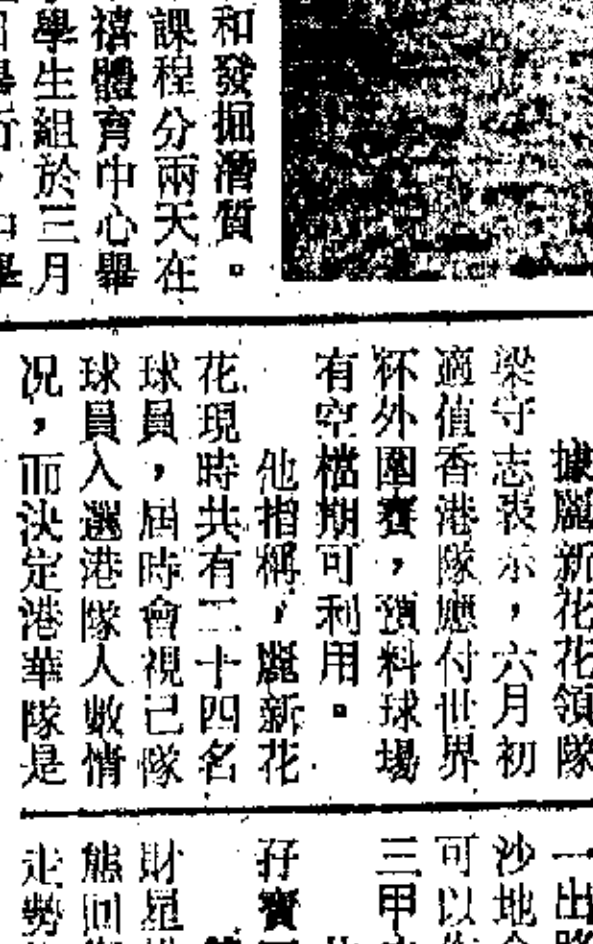 和發掘潛質。
課程分兩天在
禧體育中心舉
學生組於三月
據麗新花花領隊
梁守志表示，六月初
適值香港隊應付世界
杯外圍賽，預料球場
有空檔期可利用。
他指稱，麗新花
花現時共有二十四名
球員，屆時會視己隊
球員入選港隊人數情
況，而決定港華隊是
一出
沙地
可以
三甲
孖寶
財星
熊回
走勢